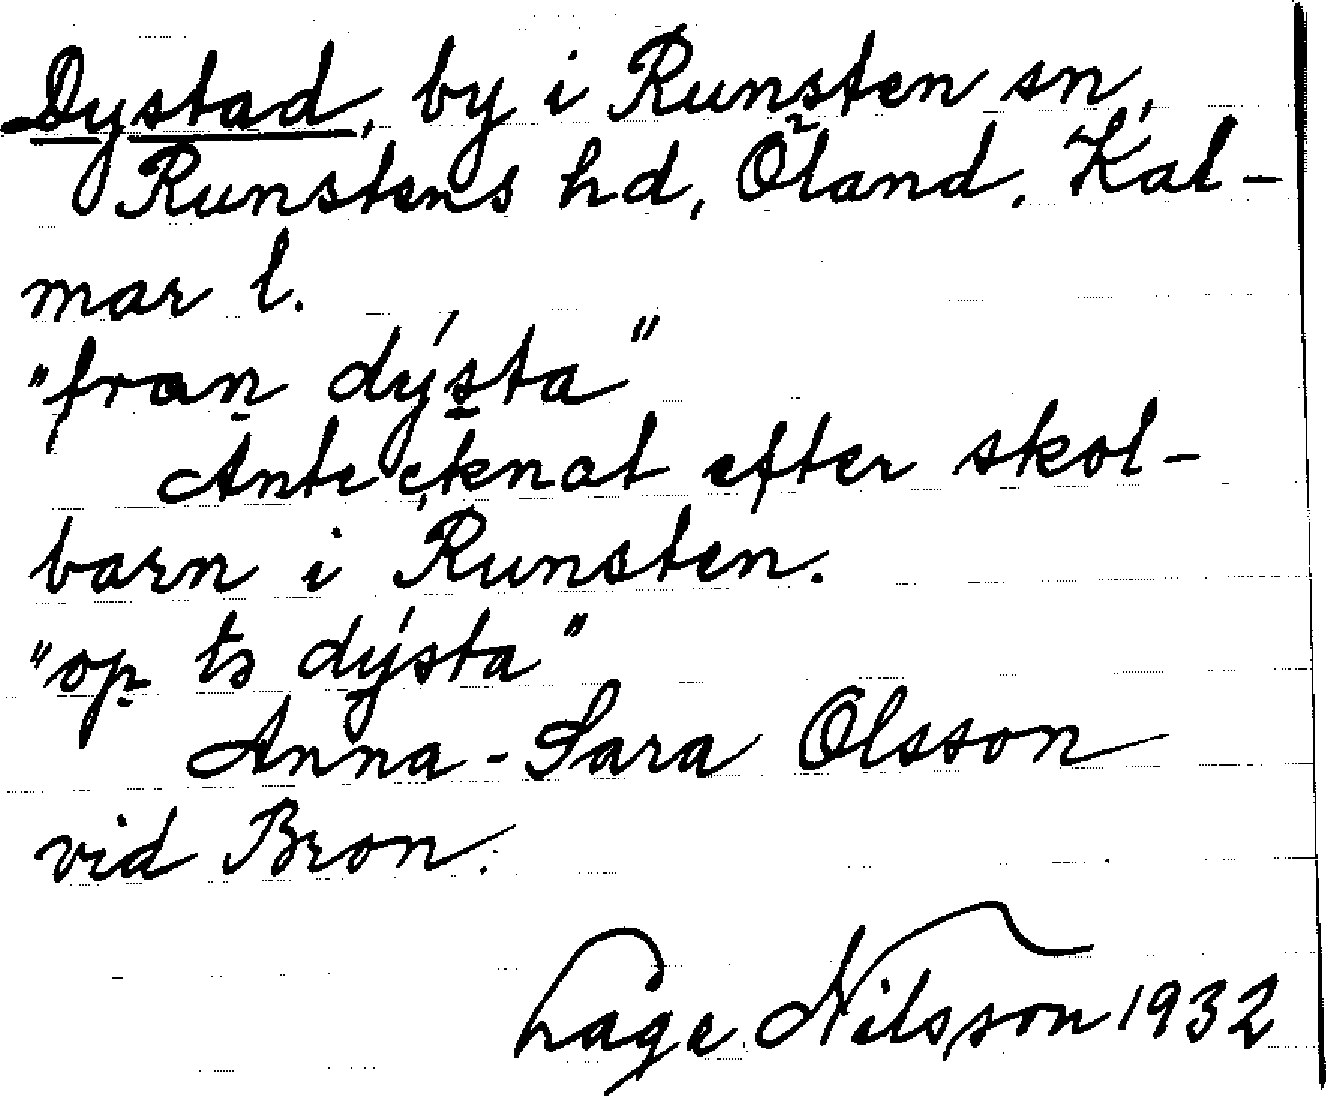 Dystad, by i Runsten sn,
Runstens hd, Öland. Kal-
mar l.
"fran dýsta"
Antecknat efter skol-
barn i Runsten.
"op ts dýsta"
Anna-Sara Olsson
vid Bron.
Lage Nilsson 1932